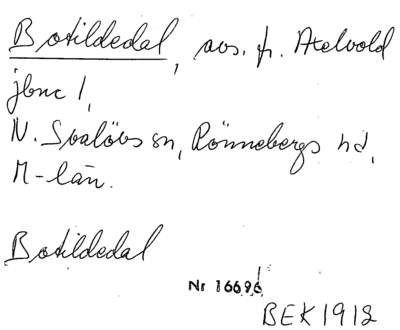 Botildedal, avs. fr. Axelvold
jbnc 1,
N. Svalövs sn, Rönnebergs hd,
M-län.
Botildedal
Nr 16696
BEK 1918